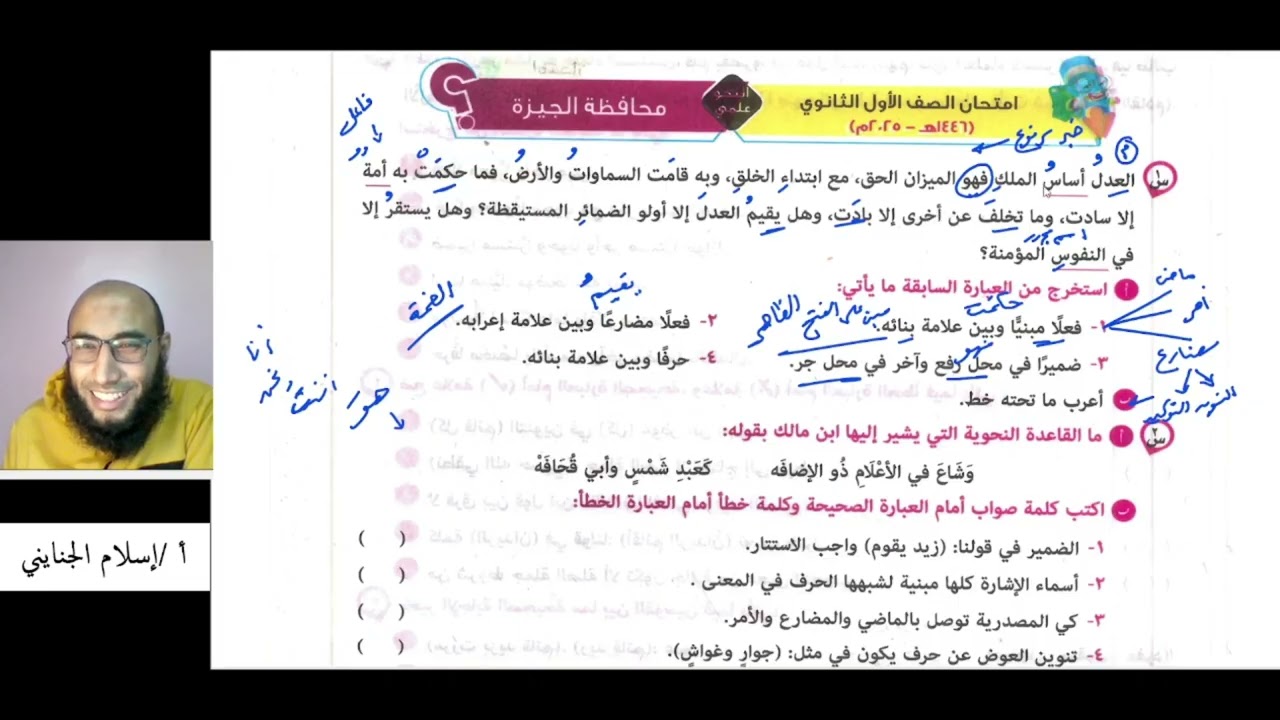 امتحان الصف الأول الثانوي
(١٤٤٦هـ - ٢٠٢٥م)
أنتحو علمي
محافظة الجيزة
خبر مرفوع
فاعل
س١ العدلُ أساسُ الملكِ فهو الميزان الحق، مع ابتداءِ الخلقِ، وبه قامَت السماواتُ والأرضُ، فما حكمَتْ به أمةٌ
إلا سادت، وما تخلفَ عن أخرى إلا بادَت، وهل يقيمُ العدلَ إلا أولو الضمائرِ المستيقظة؟ وهل يستقرُ إلا
في النفوسِ المؤمنة؟
أ استخرج من العبارة السابقة ما يأتي:
١- فعلًا مبنيًّا وبين علامة بنائه.
٢- فعلًا مضارعًا وبين علامة إعرابه.
٣- ضميرًا في محل رفع وآخر في محل جر.
٤- حرفًا وبين علامة بنائه.
حكمت
يقيمُ
الضمة
ماض
أمر
مضارع
هو
أنت
أنا
ب أعرب ما تحته خط.
س٢ أ ما القاعدة النحوية التي يشير إليها ابن مالك بقوله:
وَشَاعَ في الأعْلَامِ ذُو الإضافَه كَعَبْدِ شَمْسٍ وأبي قُحَافَهْ
ب اكتب كلمة صواب أمام العبارة الصحيحة وكلمة خطأ أمام العبارة الخطأ:
١- الضمير في قولنا: (زيد يقوم) واجب الاستتار. ( )
٢- أسماء الإشارة كلها مبنية لشبهها الحرف في المعنى . ( )
٣- كي المصدرية توصل بالماضي والمضارع والأمر. ( )
٤- تنوين العوض عن حرف يكون في مثل: (جوارٍ وغواشٍ). ( )
أ /إسلام الجنايني